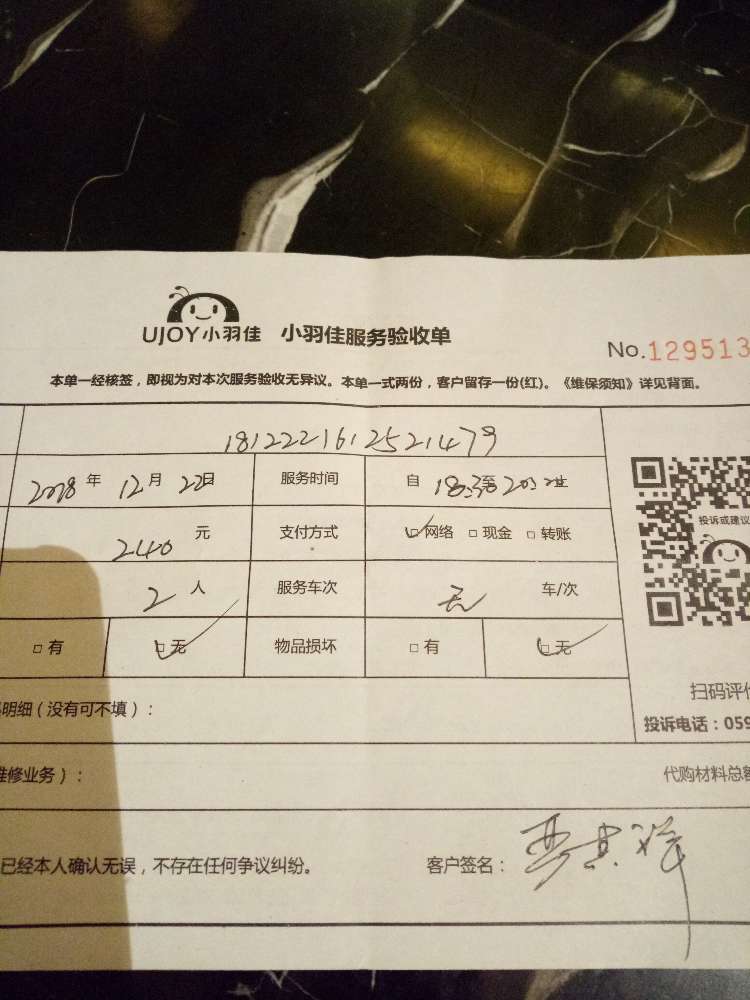 UJOY小羽佳 小羽佳服务验收单
No.129513
本单一经核签，即视为对本次服务验收无异议。本单一式两份，客户留存一份(红)。《维保须知》详见背面。
181222161252 1479
2018年12月22日 服务时间 自 至
240元 支付方式 ☑网络 □现金 □转账
投诉或建议
2人 服务车次 无 车/次
□有 ☑无 物品损坏 □有 ☑无
扫码评价
明细（没有可不填）：
投诉电话：059
维修业务）：
代购材料总额
已经本人确认无误，不存在任何争议纠纷。 客户签名：